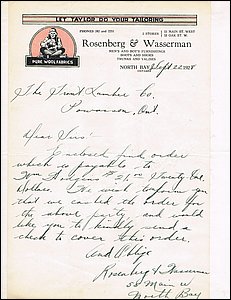 LET TAYLOR DO YOUR TAILORING
PURE WOOL FABRICS
PHONES 182 and
Rosenberg & Wasserman
MEN'S AND BOY'S FURNISHINGS
BOOTS AND SHOES
TRUNKS AND VALISES
2 STORES
15 MAIN ST WEST
OAK ST W.
NORTH BAY, Sept 22 1928
ONTARIO
The Trout Lumber Co,
Powassan, Ont.
Dear Sirs:
Enclosed find order
which is payable to
Tom $21.00 Twenty One
Dollars. We wish to inform you
that we cashed the order for
the above party, and would
like you to kindly send a
check to cover this order.
and Oblige
Rosenberg & Wasserman
58 Main W
North Bay